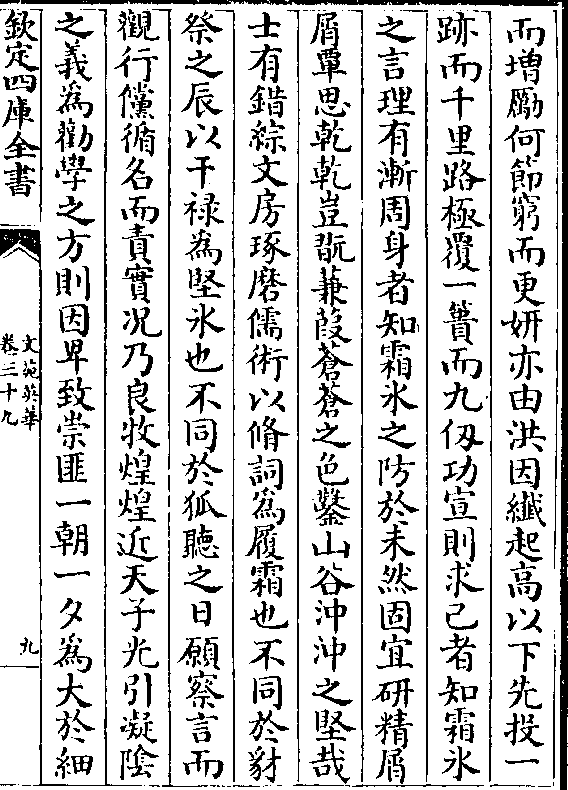 而增勵何節窮而更妍亦由洪因纖起高以下先投一
跡而千里路極覆一簣而九仭功宣則求己者知霜氷
之言理有漸周身者知霜氷之防於未然固宜研精屑
屑覃思乾乾豈翫蒹葭蒼蒼之色鑿山谷沖沖之堅哉
士有錯綜文房琢磨儒術以脩詞為履霜也不同於豺
祭之辰以干禄為堅氷也不同於狐聽之日願察言而
觀行儻循名而責實况乃良牧煌煌近天子光引凝隂
之義為勸學之方則因卑致崇匪一朝一夕為大於細
欽定四庫全書
文苑英華
卷三十九
九